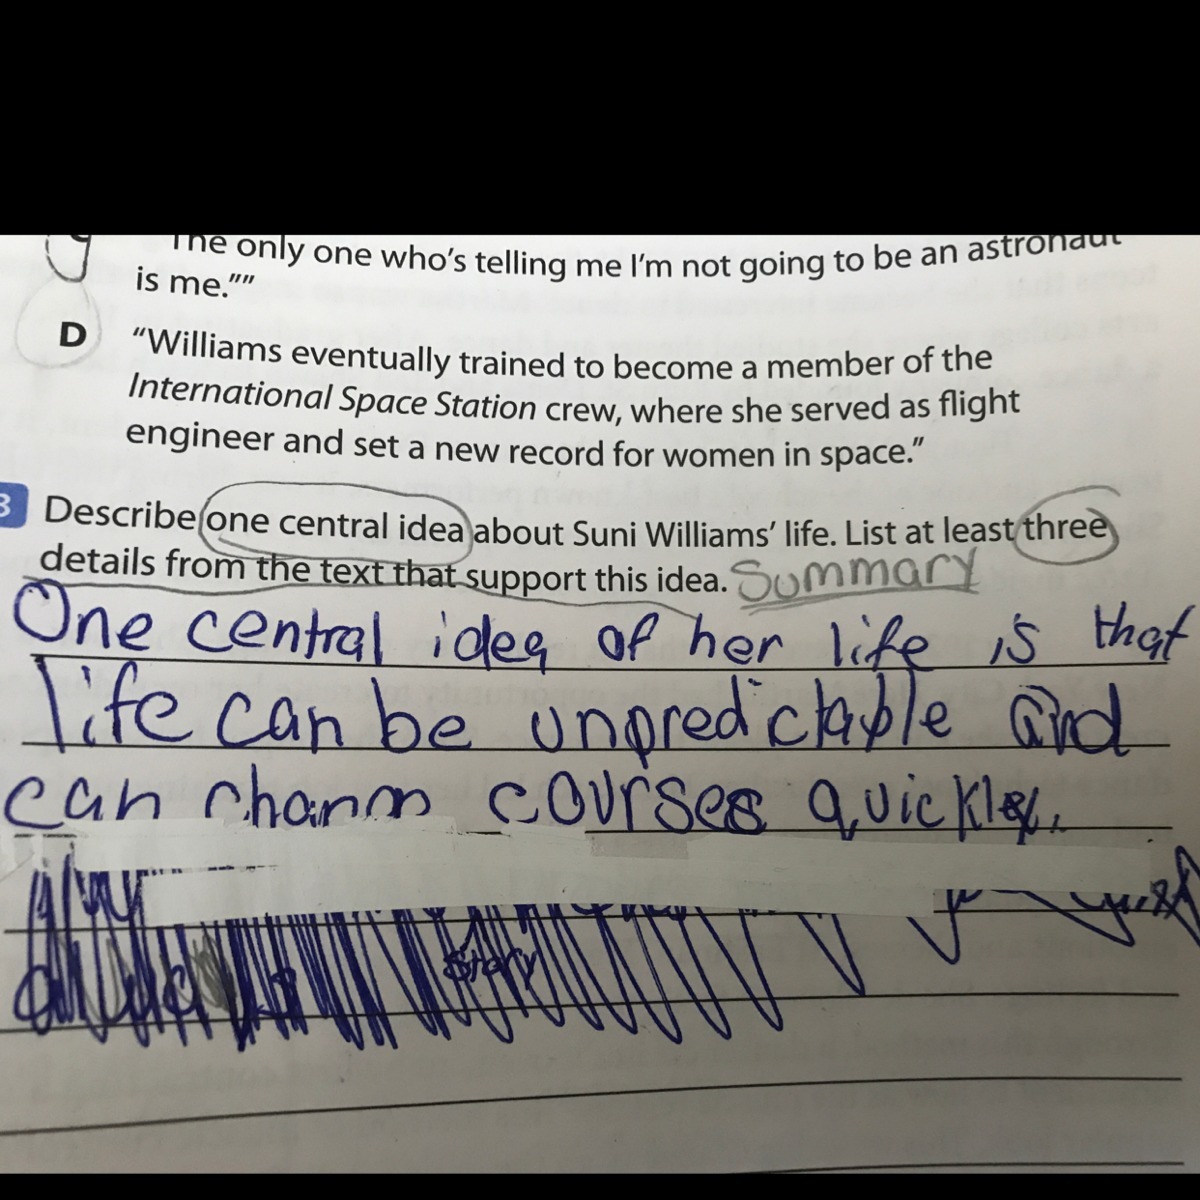 The only one who's telling me I'm not going to be an astronaut
is me.""
D "Williams eventually trained to become a member of the
International Space Station crew, where she served as flight
engineer and set a new record for women in space."
3 Describe one central idea about Suni Williams' life. List at least three
details from the text that support this idea. Summary
One central idea of her life is that
life can be unpredictable and
can courses quickley.
story